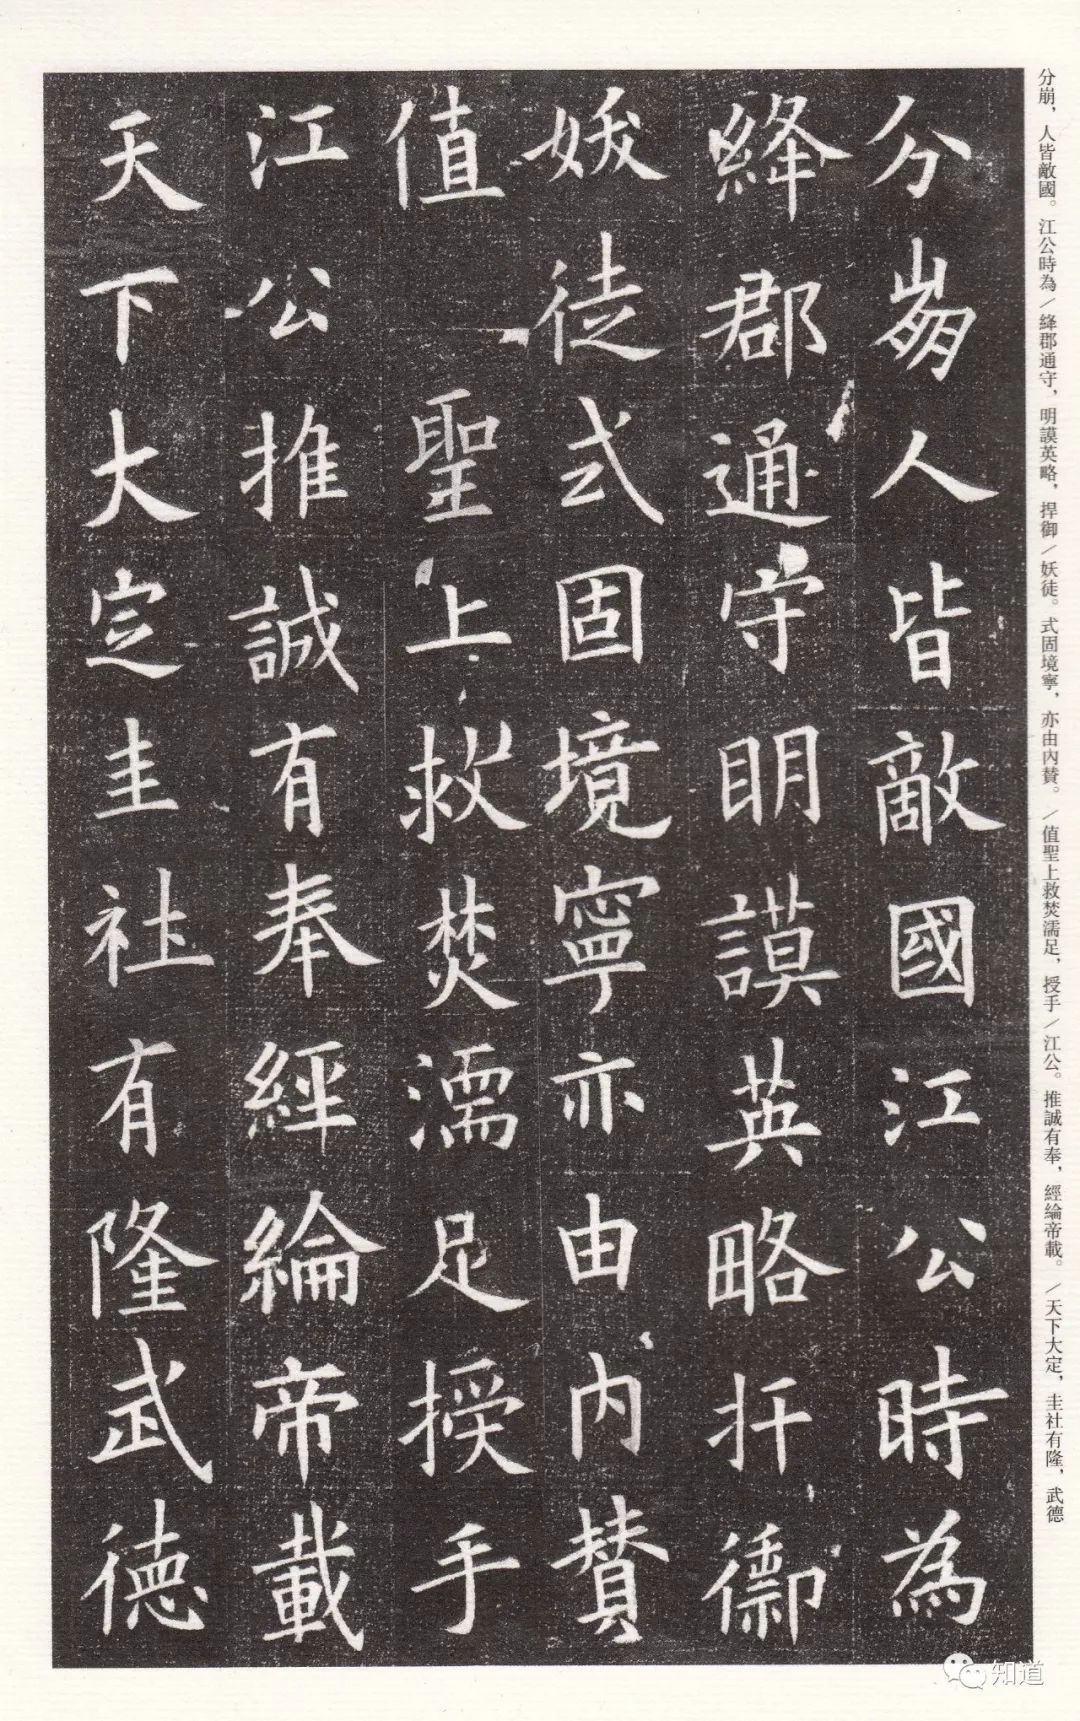 分崩，人皆敵國。江公時為／絳郡通守，明謨英略，捍御／妖徒。式固境寧，亦由內贊。／值聖上救焚濡足，授手／江公。推誠有奉，經綸帝載。／天下大定，圭社有隆，武德
分崩人皆敵國江公時為
絳郡通守明謨英略扞禦
妖徒式固境寧亦由内賛
值聖上救焚濡足授手
江公推誠有奉經綸帝載
天下大定圭社有隆武德
知道